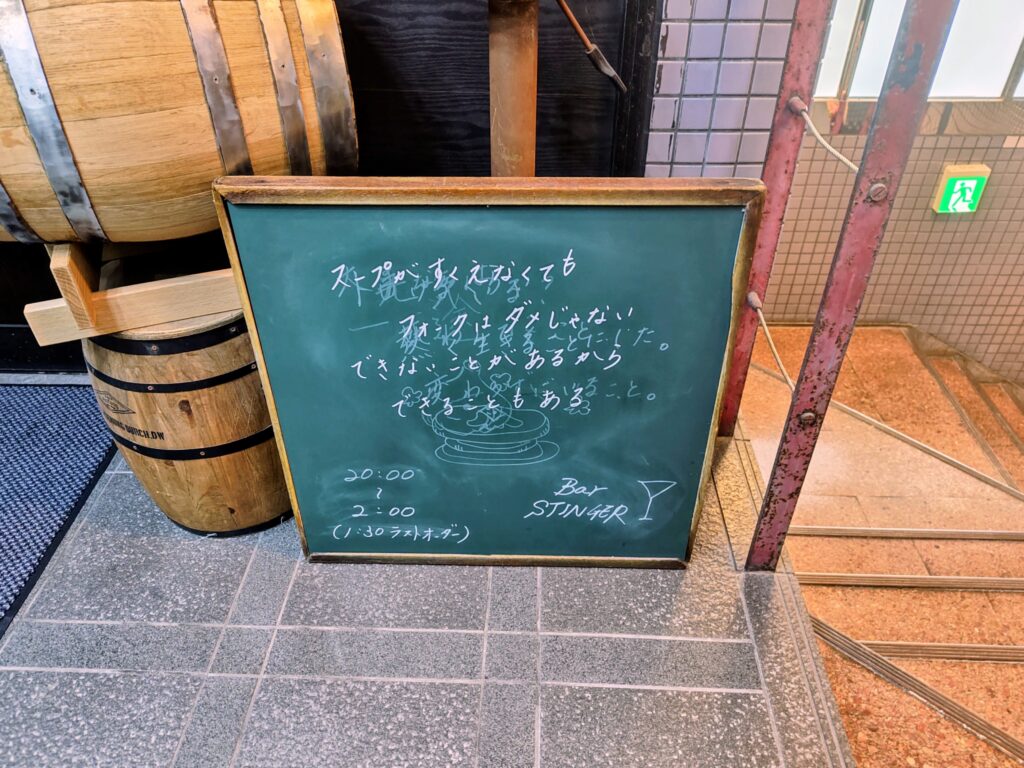 スープがすくえなくても
フォークはダメじゃない
できないことがあるから
できることもある
20:00
~
2:00
(1:30 ラストオーダー)
Bar
STINGER